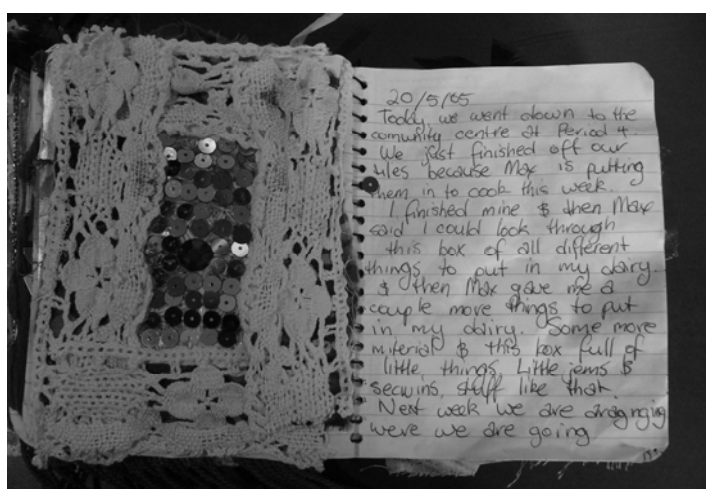 20/5/05
Today we went down to the
comunity centre at Period 4.
We just finished off our
tiles because Max is putting
them in to cook this week.
I finished mine & then Max
said I could look through
this box of all different
things to put in my dairy.
& then Max gave me a
couple more things to put
in my dairy. Some more
material & this box full of
little, things. Little jems &
secwins, stuff like that.
Next week we are aragnging
were we are going